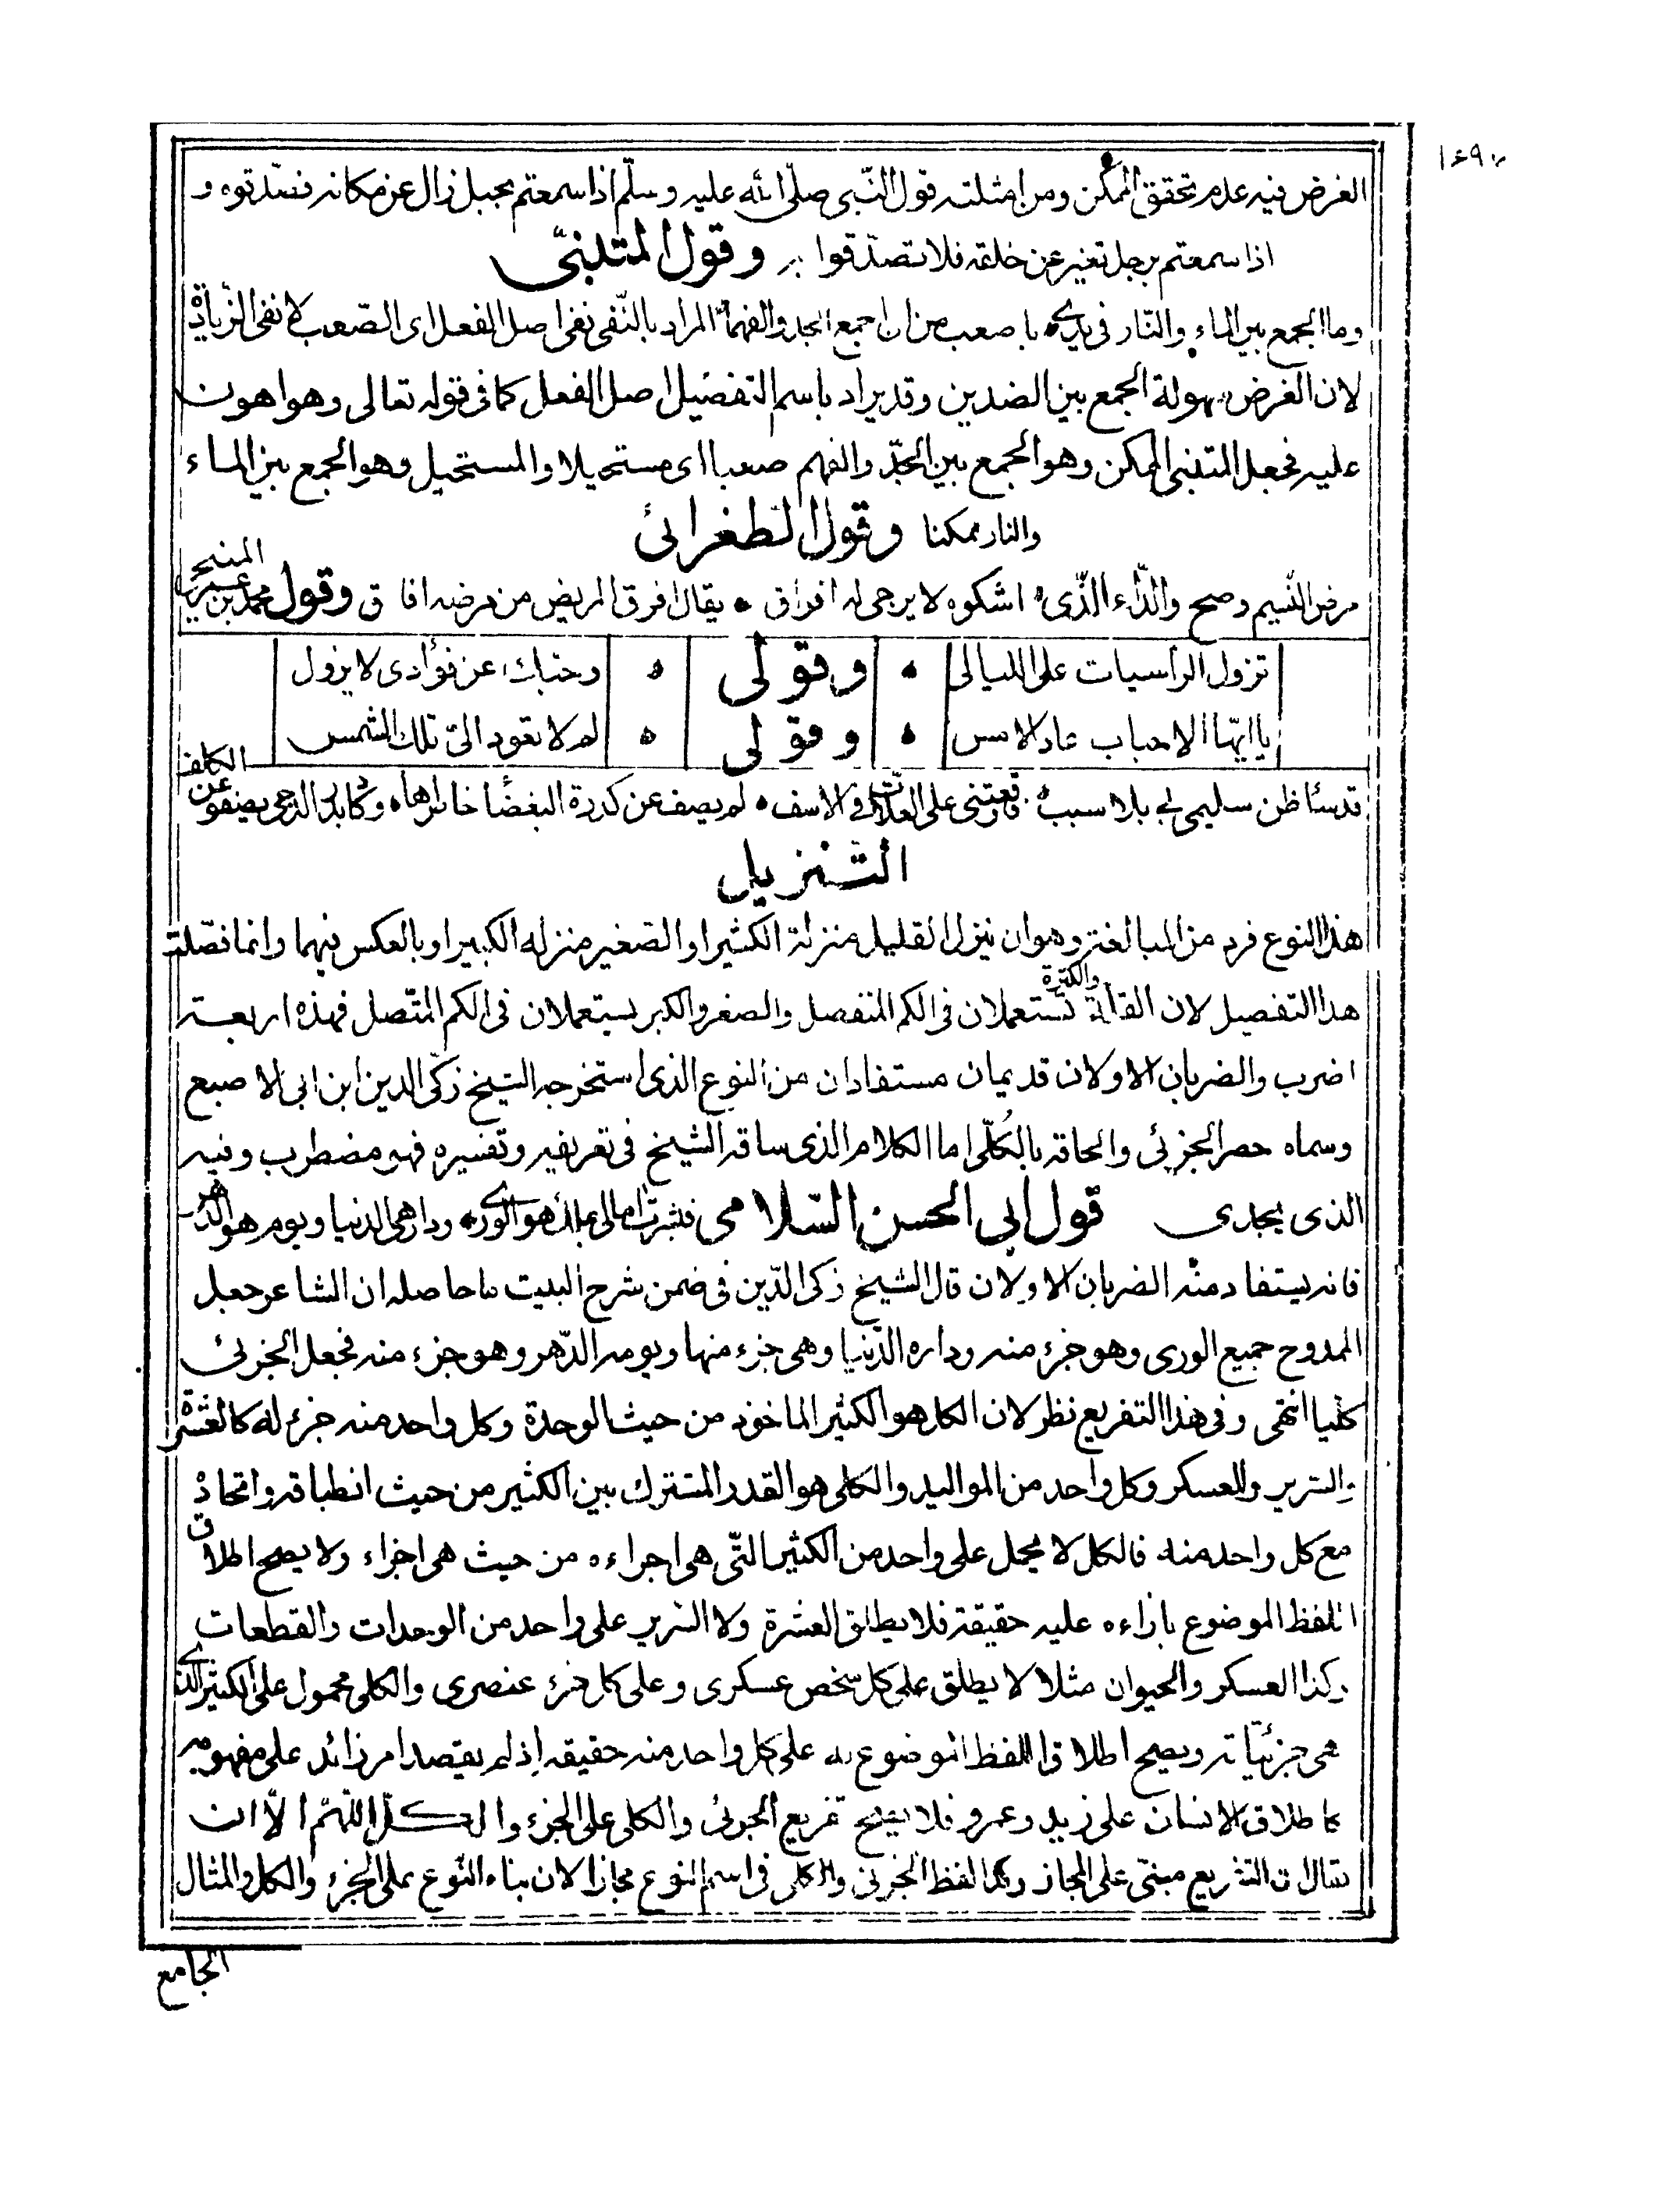 الغرض فيه عدم تحقق الممكن ومن امثلته قول النّبى صلّى الله عليه وسلّم اذا سمعتم بجبل زال عن مكانه فصدّقوه و
اذا سمعتم برجل تغير عن خلقه فلا تصدّقوا به وقول المتنبىّ
وما الجمع بين الماء والنّار فى يدى باصعب من ان اجمع الجد والفهما المراد بالنّفى نفى اصل الفعل اى الصّعب لا نفى الزيادة
لان الغرض سهولة الجمع بين الضدين وقد يراد باسم التفضيل اصل الفعل كما فى قوله تعالى وهو اهون
عليه فجعل المتنبى الممكن وهو الجمع بين الجدّ والفهم صعبا اى مستحيلا والمستحيل وهو الجمع بين الماء
والنار ممكنا وقول الطغرائى
مرض النّسيم وصح والدّاء الّذى اشكوه لا يرجى له افراق يقال افرق المريض من مرضه افاق وقول محمد بن
تزول الراسيات على الليالى وقولى وحبك عن فؤادى لا يزول
يا ايّها الاحباب عاد الامس وقولى لم لا تعود الىّ تلك الشمس
قد ساظن سليمى بى بلا سبب فى الاسف لم يصف عن كدرة البغضا خاطرها وكابد الدجى يصفو عن الكلف
التنزيل
هذا النوع فرد من المبالغة وهو ان ينزل القليل منزلة الكثير او الصغير منزلة الكبير او بالعكس فيهما وانما فصّلت
هذا التفصيل لان القلة والكثرة تستعملان فى الكم المنفصل والصغر والكبر يستعملان فى الكم المتّصل فهذه اربعة
اضرب والضربان الاولان قديمان مستفادان من النوع الذى استخرجه الشيخ زكى الدين ابن ابى الاصبع
وسماه حصر الجزئى والحاقه بالكلّى اما الكلام الذى ساقه الشيخ فى تعريفه وتفسيره فهو مضطرب وفيه
الذى يجدى قول ابى الحسن السّلامى فبشرت امالى بملك هو الورى ودار هى الدنيا ويوم هو الدهر
فانه يستفاد منه الضربان الاولان قال الشيخ زكى الدّين فى ضمن شرح البيت ما حاصله ان الشاعر جعل
الممدوح جميع الورى وهو جزء منه وداره الدّنيا وهى جزء منها ويومه الدّهر وهو جزء منه فجعل الجزئى
كليا انتهى وفى هذا التفريع نظر لان الكل هو الكثير الماخوذ من حيث الوحدة وكل واحد منه جزء له كالعشرة
والسرير والعسكر وكل واحد من المواليد والكلى هو القدر المشترك بين الكثير من حيث انطباقه واتحاده
مع كل واحد منه فالكل لا يحمل على واحد من الكثير الّتى هى اجزاءه من حيث هى اجزاء ولا يصح اطلاق
اللفظ الموضوع بازاءه عليه حقيقة فلا يطلق العشرة ولا السرير على واحد من الوحدات والقطعات
وكذا العسكر والحيوان مثلا لا يطلق على كل شخص عسكرى وعلى كل جزء عنصرى والكلى محمول على الكثير الذى
هى جزئيّاته ويصح اطلاق اللفظ الموضوع له على كل واحد منه حقيقة اذا لم يقصد امر زائد على مفهومه
كاطلاق الانسان على زيد وعمرو فلا يصح تفريع الجزئى والكلى على الجزء والكل اللهم الّا ان
يقال ان التفريع مبنّى على المجاز وكذا لفظ الجزئى والكلى فى اسم النوع مجاز لان بناء النّوع على الجزء والكل والمثال
الجامع